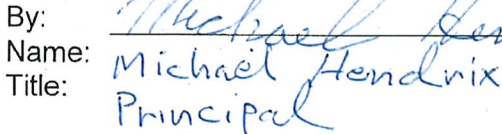 By: Michael Hen
Name: Michael Hendrix
Title: Principal